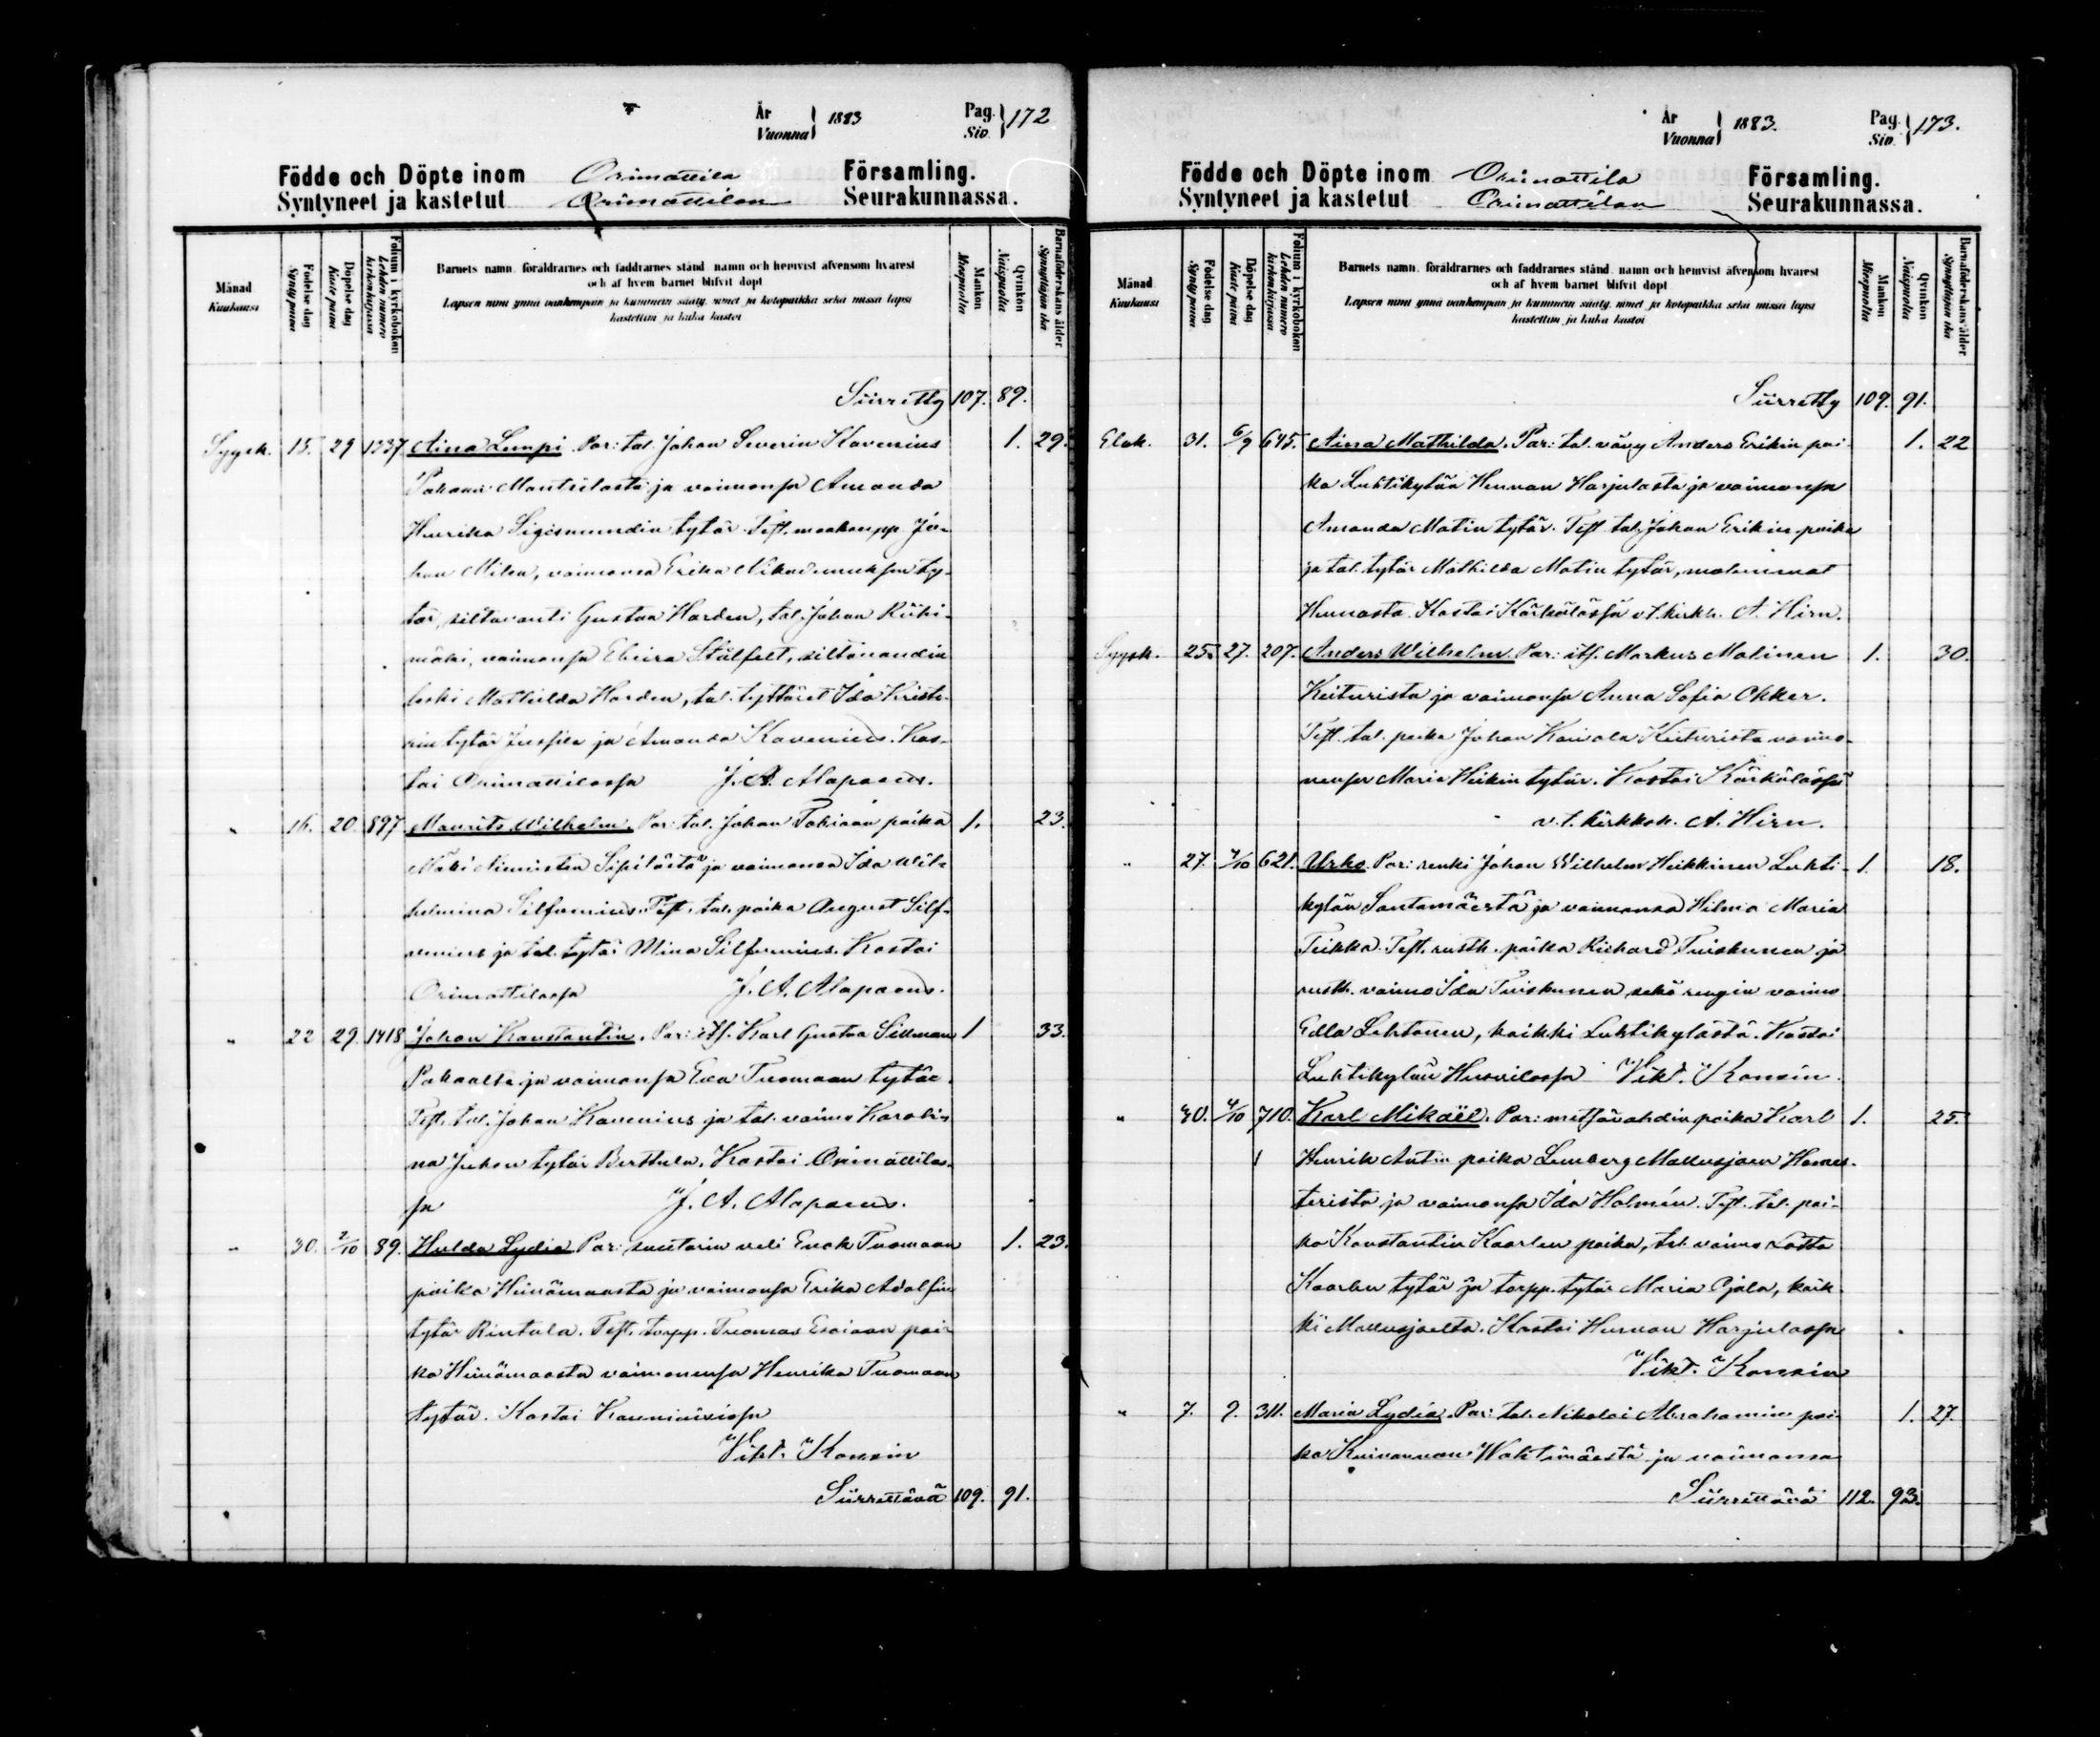 År Vuonna 1883 Pag. Siv. 172
Födde och Döpte inom Orimattila Församling.
Syntyneet ja kastetut Orimattilan Seurakunnassa.
Månad Kuukausi
Födelse dag Synty päivä
Döpelse dag Kaste päivä
Folium i kyrkoboken Lehden numero kirkonkirjassa
Barnets namn, föräldrarnes och faddrarnes stånd, namn och hemvist äfvensom hvarest
och af hvem barnet blifvit döpt
Lapsen nimi ynnä vanhempain ja kummein sääty, nimet ja kotopaikka sekä missä lapsi
kastettiin ja kuka kastoi
Mankön Miespuolia
Qvinkön Naispuolia
Barnaföderskans ålder Synnyttäjän ikä
Siirretty 107. 89.
Syysk. 15. 29 1337 Aina Lempi. Par: tal. Johan Severin Kavenius 1. 29.
Pakaan Manttilasta ja vaimonsa Amanda
Henrika Sigismundin tytär. Test. maakaupp. Jo-
han Milén, vaimonsa Erika Nikodemuksen ty-
tär, siltavouti Gustaa Harden, tal. Johan Riihi-
mäki, vaimonsa Elvira Stålfelt, siltavoudin
leski Mathilda Harden, tal. tyttäret Ida Kriste-
rin tytär Jussila ja Amanda Kavenius. Kas-
toi Orimattilassa J. A. Alopaeus.
" 16. 20. 897 Maurits Wilhelm. Par: tal. Johan Tobiaan poika 1. 23.
Mäki Niinistön Sipilästä ja vaimonsa Ida Wil-
helmina Silfvenius. Test. tal. poika August Silf-
venius ja tal. tytär Mina Silfvenius. Kastoi
Orimattilassa J. A. Alopaeus.
" 22 29. 1418 Johan Konstantin. Par: its. Karl Gustaa Sillman 1 33.
Pakaalta ja vaimonsa Eva Tuomaan tytär.
Test. tal. Johan Kavenius ja tal. vaimo Karoli-
na Juhon tytär Berttula. Kastoi Orimattilas-
sa J. A. Alopaeus.
" 30. 2/10 89. Hulda Lydia. Par: suutarin veli Enok Tuomaan 1. 23.
poika Heinämaasta ja vaimonsa Erika Adolfin
tytär Rintala. Test. torpp. Tuomas Esaiaan poi-
ka Heinämaasta vaimonensa Henrika Tuomaan
tytär. Kastoi
Vikt. Konsin
Siirrettävä 109. 91.
År Vuonna 1883. Pag. Siv. 173.
Födde och Döpte inom Orimattila Församling.
Syntyneet ja kastetut Orimattilan Seurakunnassa.
Månad Kuukausi
Födelse dag Synty päivä
Döpelse dag Kaste päivä
Folium i kyrkoboken Lehden numero kirkonkirjassa
Barnets namn, föräldrarnes och faddrarnes stånd, namn och hemvist äfvensom hvarest
och af hvem barnet blifvit döpt
Lapsen nimi ynnä vanhempain ja kummein sääty, nimet ja kotopaikka sekä missä lapsi
kastettiin ja kuka kastoi
Mankön Miespuolia
Qvinkön Naispuolia
Barnaföderskans ålder Synnyttäjän ikä
Siirretty 109. 91.
Elok. 31. 6/9 645. Aina Mathilda. Par: tal. vävy Anders Erikin poi- 1. 22
ka Luhtikylän Hennan Harjulasta ja vaimonsa
Amanda Matin tytär. Test tal. Johan Erikin poika
ja tal. tytär Mathilda Matin tytär, molemmat
Hennasta. Kastoi Kärkölässä v.t. kirkh. A. Hirn.
Syysk. 25. 27. 207. Anders Wilhelm. Par: its. Markus Malinen 1. 30.
Keiturista ja vaimonsa Anna Sofia Okker.
Test. tal. poika Johan Kaivola Keiturista vaimo-
nensa Maria Heikin tytär. Kastoi Kärkölässä
v.t. kirkkoh. A. Hirn.
" 27. 7/10 621. Urho. Par: renki Johan Wilhelm Heikkinen Luhti- 1. 18.
kylän Santamäestä ja vaimonsa Hilma Maria
Teikka. Test. rusth. poika Rickard Tuiskunen ja
rusth. vaimo Ida Tuiskunen, sekä rengin vaimo
Edla Lehtonen, kaikki Luhtikylästä. Kastoi
Luhtikylän Vikt. Konsin.
" 30. 4/10 710. Karl Mikäel. Par: metsävahdin poika Karl 1. 25.
Henrik Antin poika Lemberg Mallusjoen
ja vaimonsa Ida Holmén. Test. tal. poi-
ka Konstantin Kaarlen poika, tal. vaimo Lotta
Kaarlen tytär ja torpp. tytär Maria Ojala, kaik-
ki Mallusjoelta. Kastoi Hennan Harjulassa
Vikt. Konsin
" 7. 9. 311. Maria Lydia. Par: tal. Nikolai Abrahamin poi- 1. 27.
ka Kuivannon Wahtimäestä ja vaimonsa
Siirrettävä 112. 93.